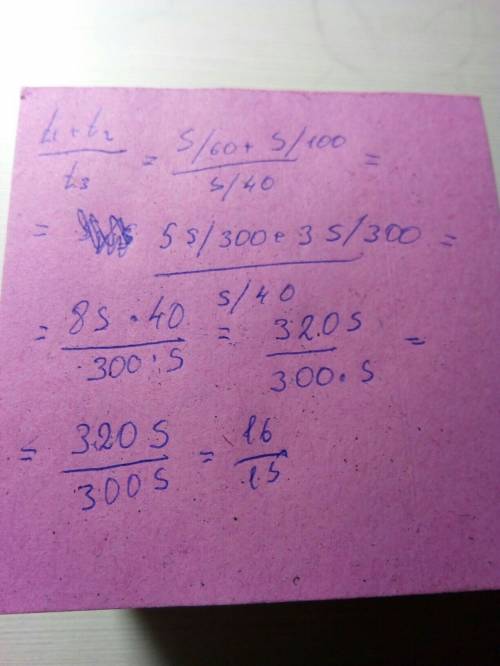 t₁+t₂/t₃ = S/60+S/100 / S/40 =
= 5S/300+3S/300 / S/40 =
= 8S·40/300·S = 320S/300·S =
= 320S/300S = 16/15